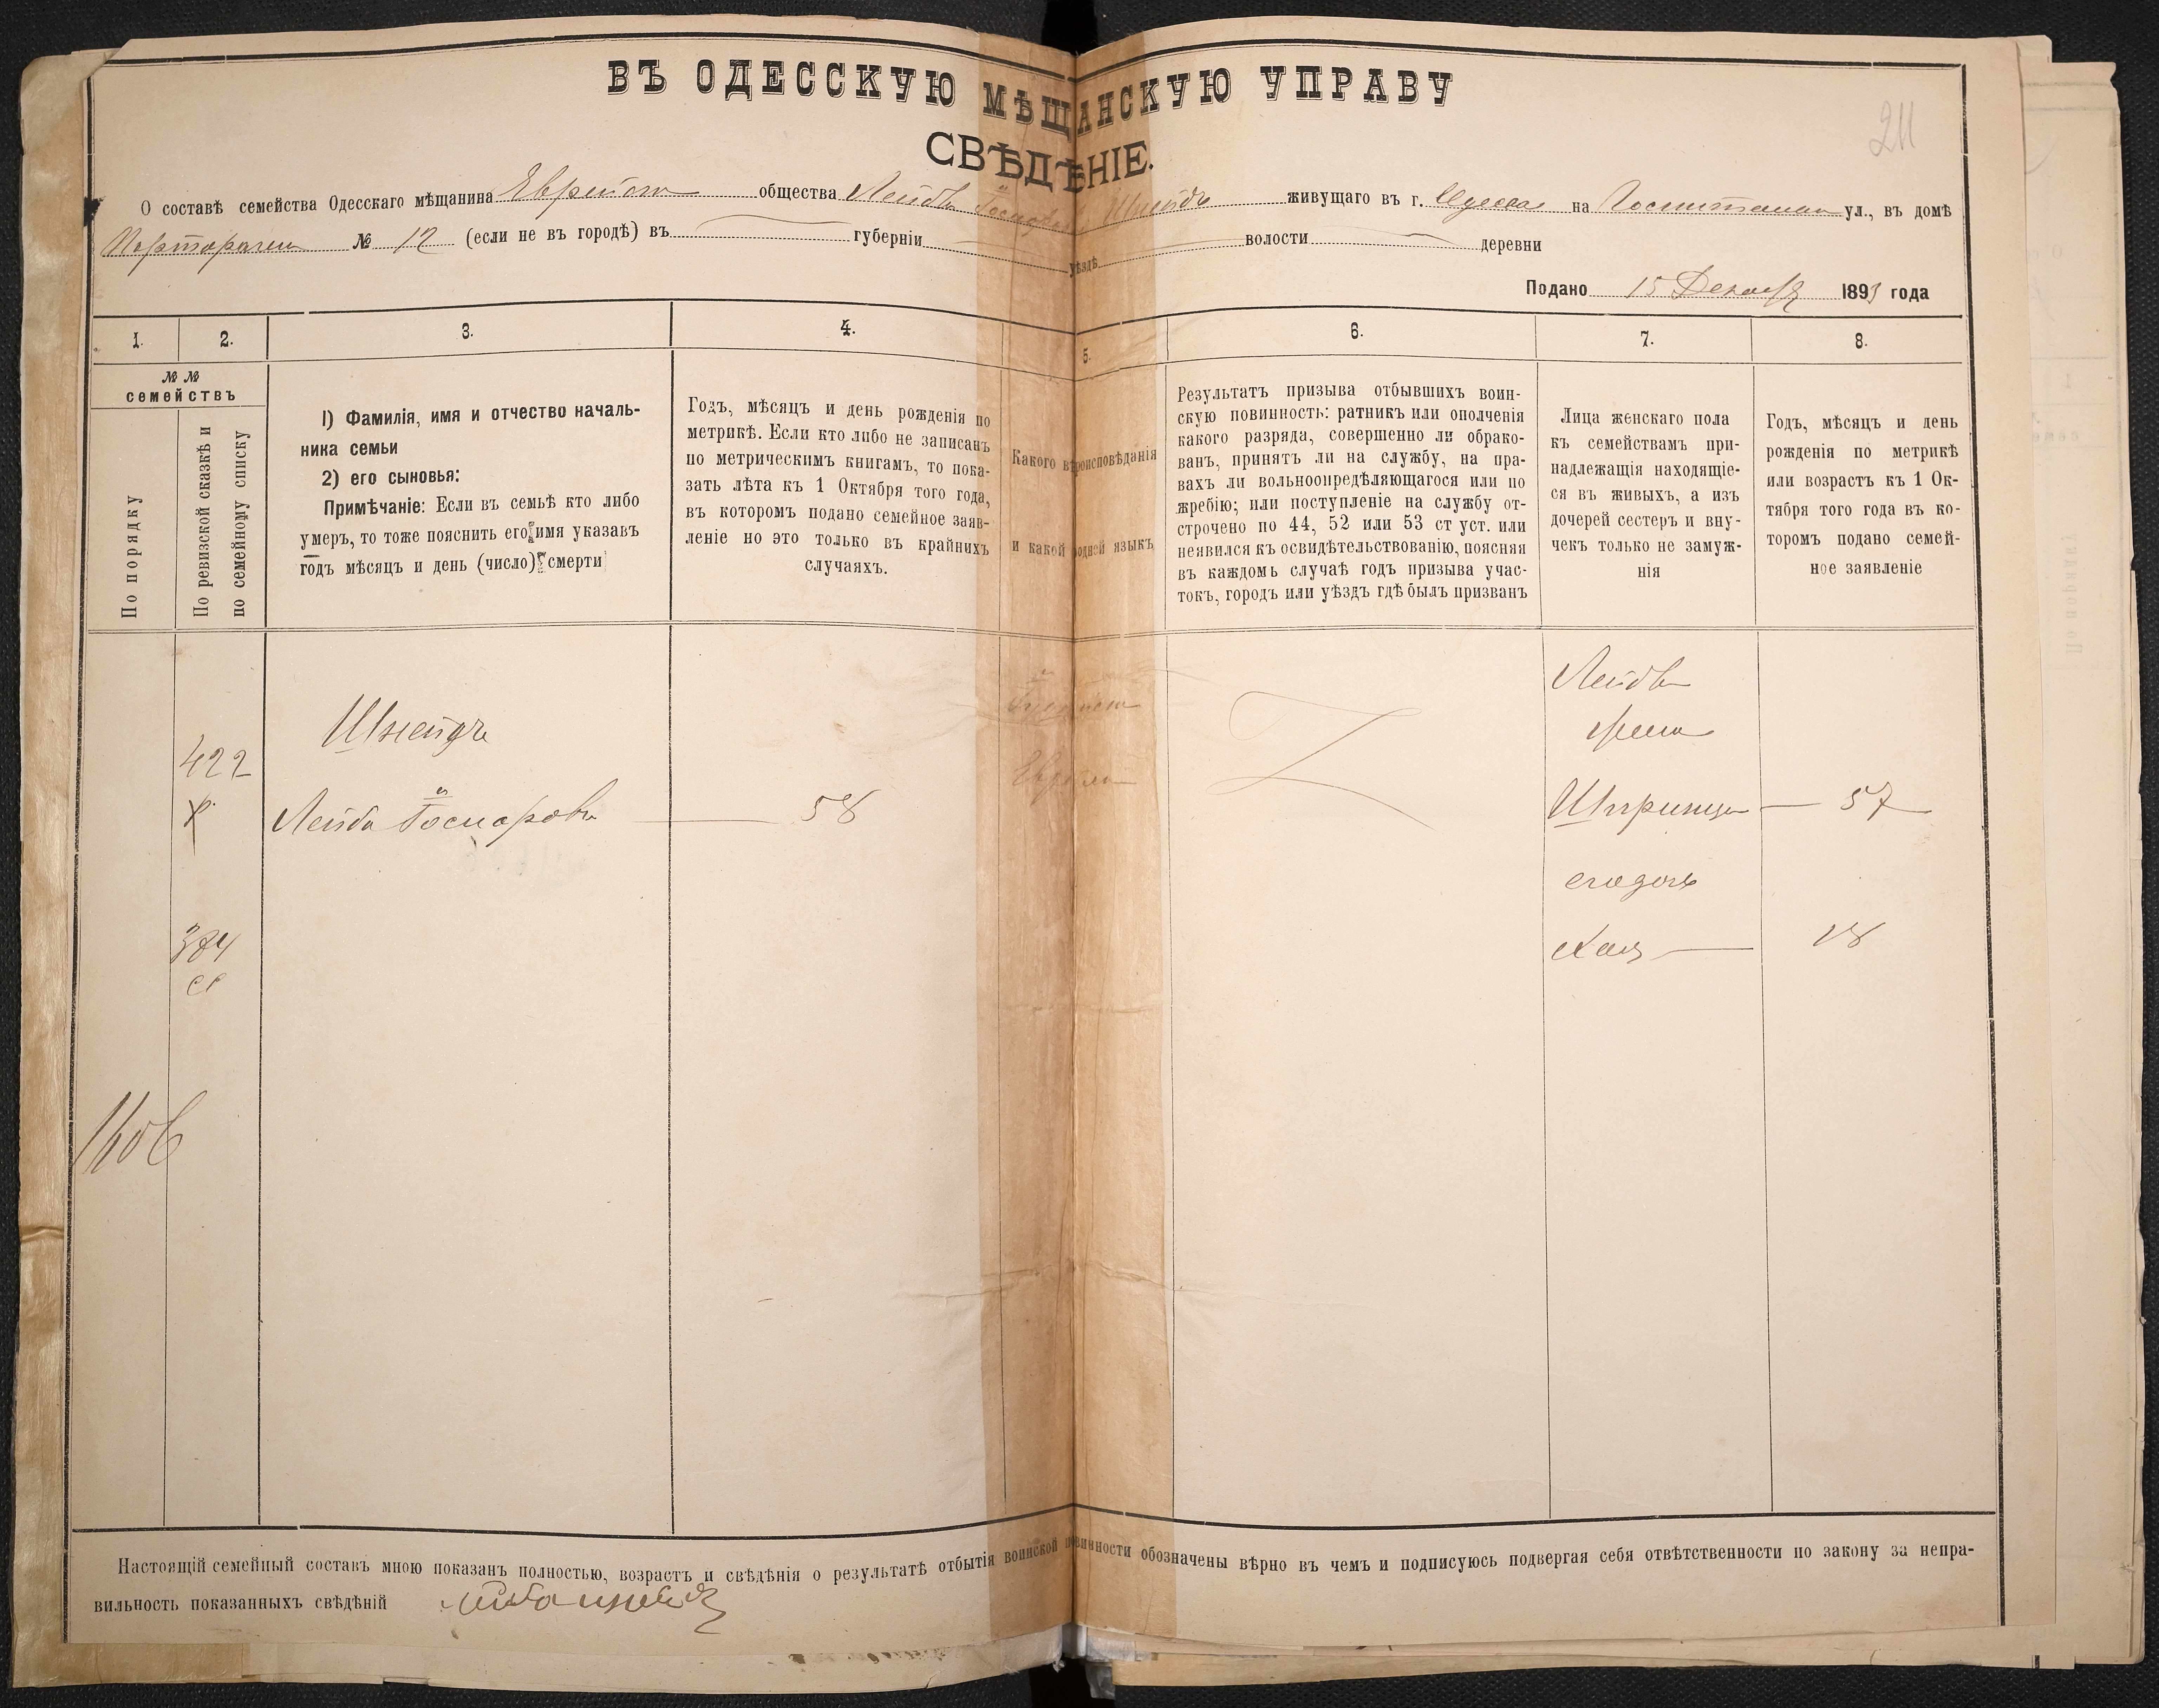 ВЪ ОДЕССКУЮ МѢЩАНСКУЮ УПРАВУ
211
СВѢДѢНІЕ.
О составѣ семейства Одесскаго мѣщанина общества Лейбы Шнейдъ живущаго въ г. Одесса на ул., въ домѣ
№ 12 (если не въ городѣ) въ губерніи уѣздѣ волости деревни
Подано 15 Декабря 1893 года
1. 2. 3. 4. 5. 6. 7. 8.
№ №
семействъ
По порядку
По ревизской сказкѣ и
по семейному списку
1) Фамилія, имя и отчество началь-
ника семьи
2) его сыновья:
Примѣчаніе: Если въ семьѣ кто либо
умеръ, то тоже пояснить его имя указавъ
годъ мѣсяцъ и день (число) смерти
Годъ, мѣсяцъ и день рожденія по
метрикѣ. Если кто либо не записанъ
по метрическимъ книгамъ, то пока-
зать лѣта къ 1 Октября того года,
въ которомъ подано семейное заяв-
леніе но это только въ крайнихъ
случаяхъ.
Какого вѣроисповѣданія
и какой родной языкъ
Результатъ призыва отбывшихъ воин-
скую повинность: ратникъ или ополченія
какого разряда, совершенно ли обрако-
ванъ, принятъ ли на службу, на пра-
вахъ ли вольноопредѣляющагося или по
жребію; или поступленіе на службу от-
строчено по 44, 52 или 53 ст уст. или
неявился къ освидѣтельствованію, поясняя
въ каждомъ случаѣ годъ призыва учас-
токъ, городъ или уѣздъ гдѣ былъ призванъ
Лица женскаго пола
къ семействамъ при-
надлежащія находящіе-
ся въ живыхъ, а изъ
дочерей сестеръ и вну-
чекъ только не замуж-
нія
Годъ, мѣсяцъ и день
рожденія по метрикѣ
или возрастъ къ 1 Ок-
тября того года въ ко-
торомъ подано семей-
ное заявленіе
Лейбы
жена
Шнейдъ
422
Лейба 58
Штринца 57
его дочь
384
Хая 18
1606
Настоящій семейный составъ мною показанъ полностью, возрастъ и свѣдѣнія о результатѣ отбытія воинской повинности обозначены вѣрно въ чемъ и подписуюсь подвергая себя отвѣтственности по закону за непра-
вильность показанныхъ свѣдѣній